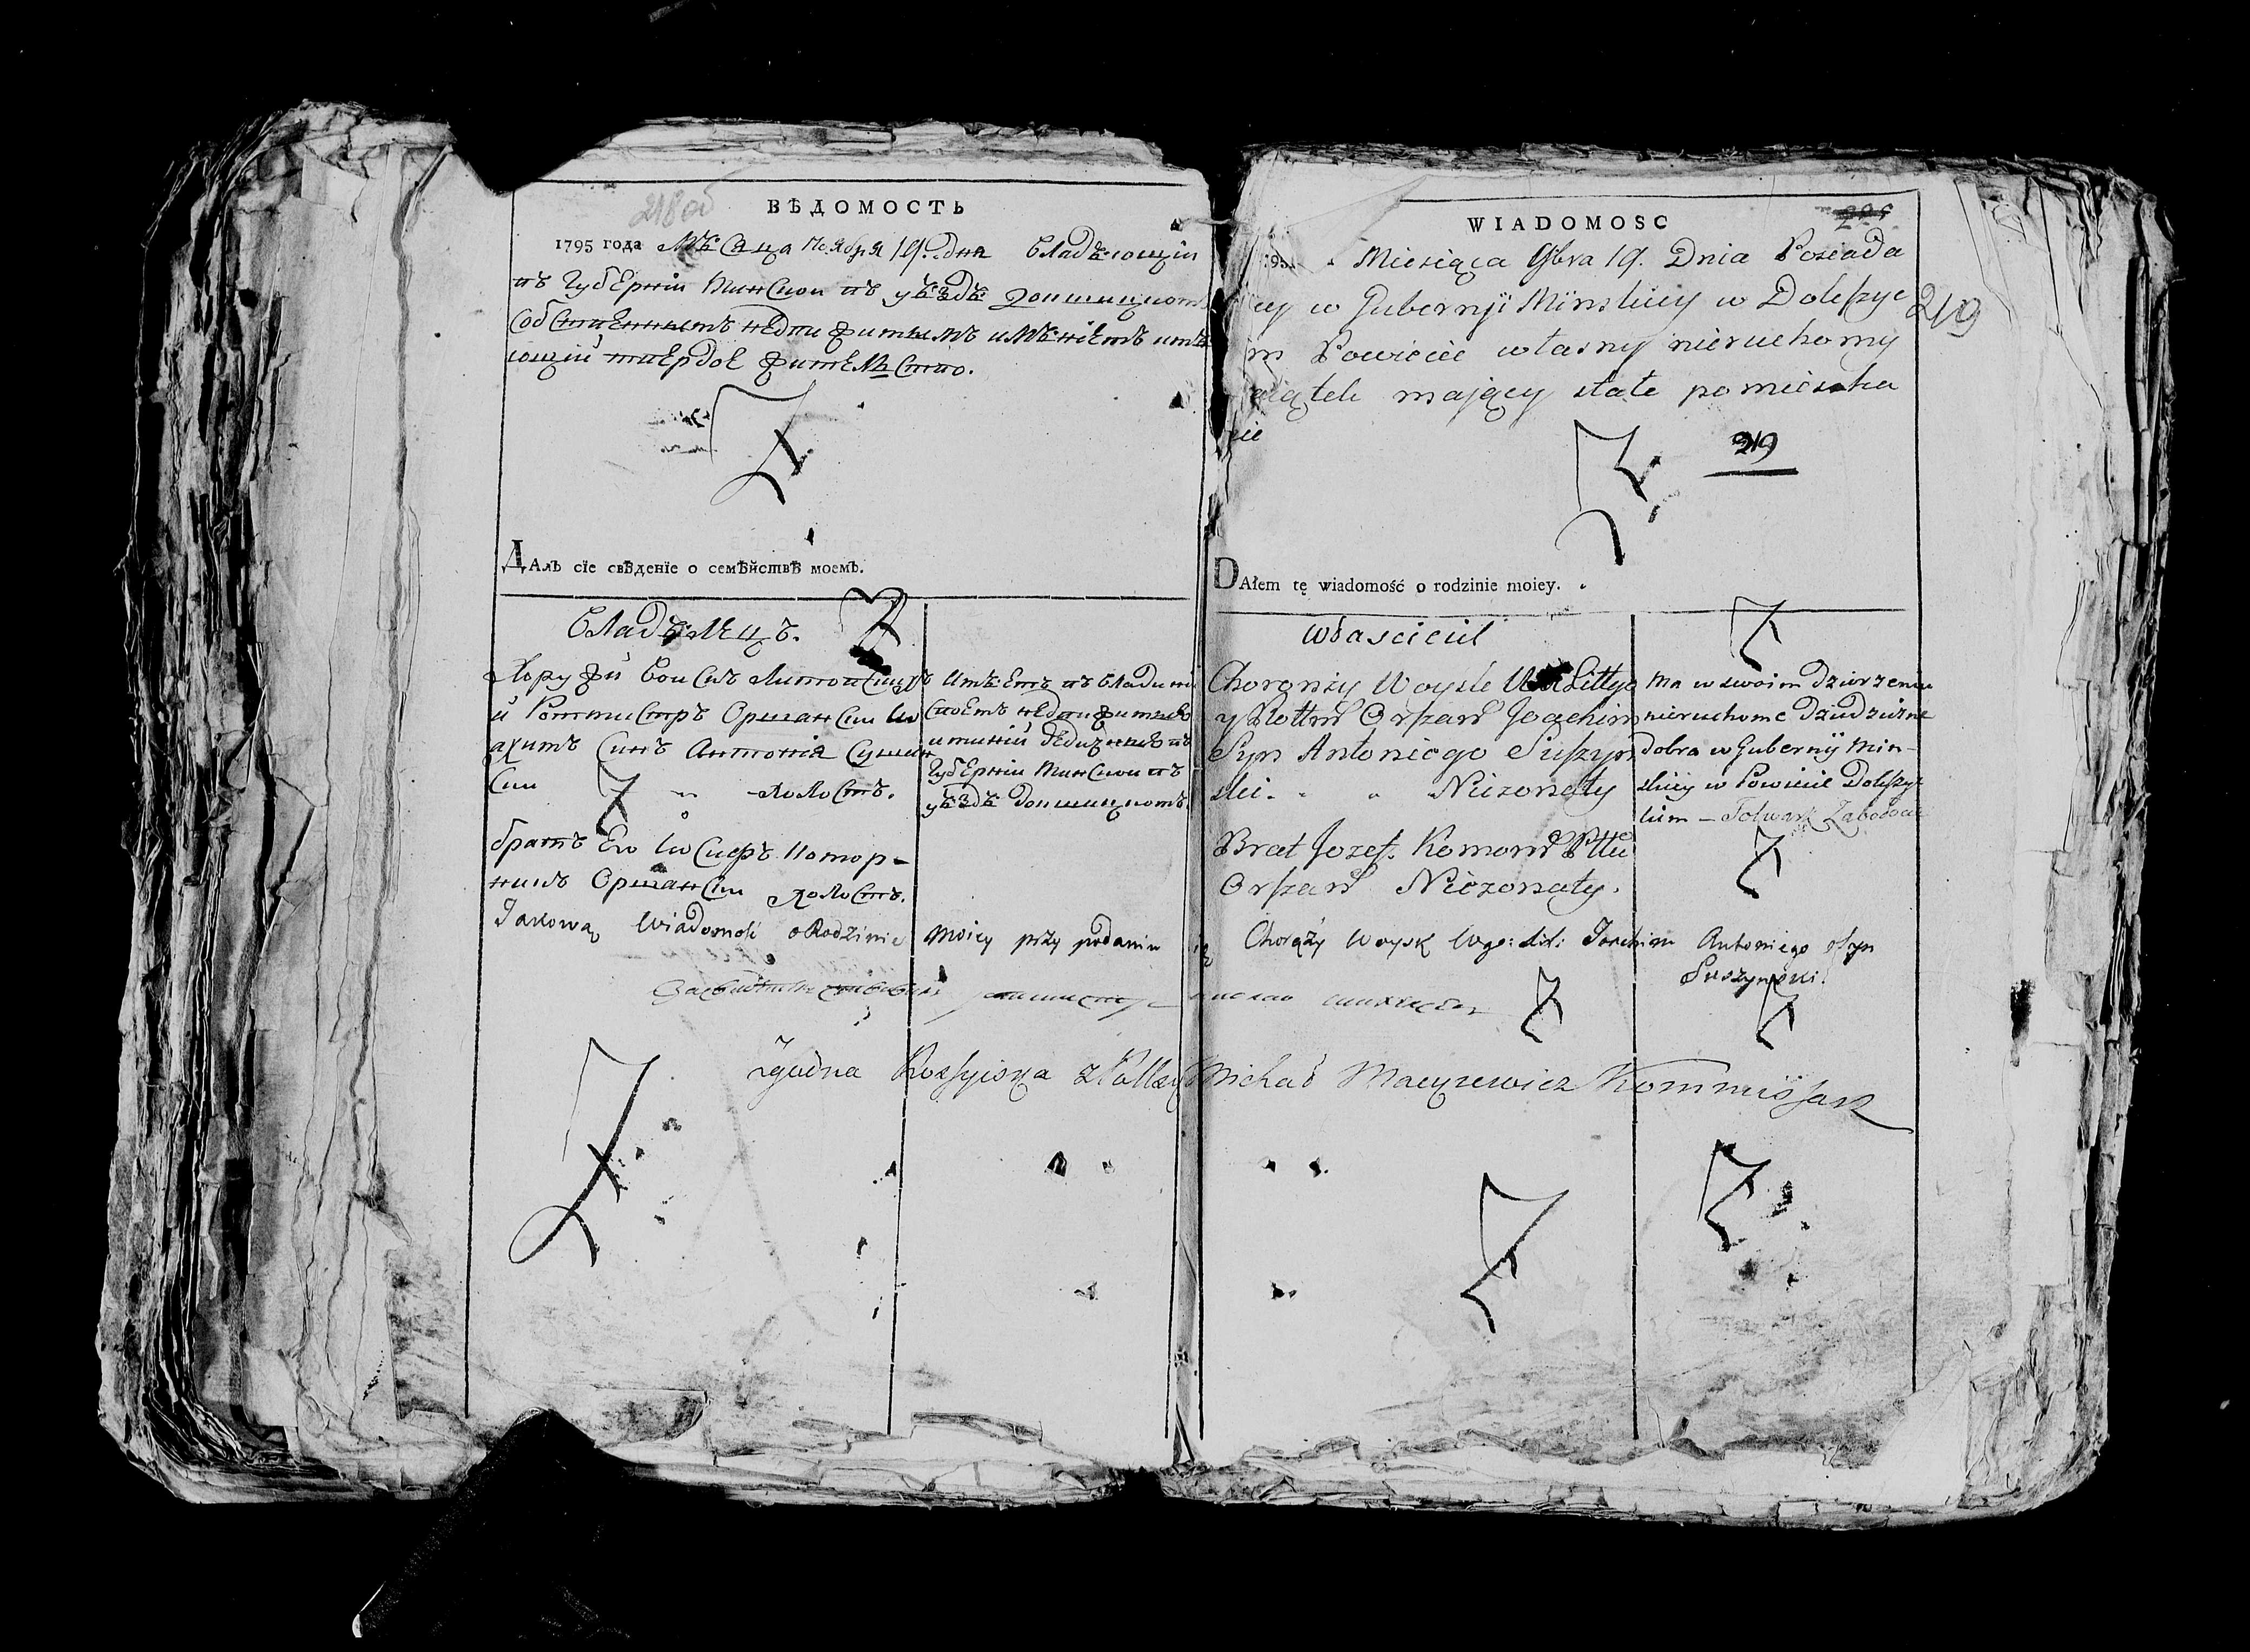 218 об
ВѢДОМОСТЬ
1795 года Мѣсяца Ноября 19. дня Владѣющій
въ Губерніи Минской въ уѣздѣ Докшицком
собственнымъ недвижимымъ имѣніемъ имѣ
ющій твердое жительство.
Далъ сїе свѣденїе о семѣйствѣ моемъ.
Владѣлецъ.
Хоружій Войскъ Литовскихъ
и Ротмистръ Оршански Іо
ахимъ Синъ Антонія Сушин
ски „ холостъ.
братъ Его Іосифъ Комор-
никъ Оршански холостъ.
Имѣетъ въ владѣніи
своемъ недвижимое
имѣній дедично въ
Губерніи Минской въ
уѣздѣ Докшицкомъ
WIADOMOSC
219
795. Miesiąca 9bra 19. Dnia Posiada
cy w Gubernji Minskiey w Dokszyc
im Powiecie własny nieruchomy
aiątek mający stałe pomieszka
nie
219
DAłem tę wiadomość o rodzinie moiey.
Właściciel
Chorąży Woysk Littgo
y Rottm Orszań Joachim
Syn Antoniego Suszyn
ski. „ Niezonaty
Brat Jozef. Komorn Pttu
Orszań Niezonaty.
Ma w swoim dzierzeniu
nieruchome dziedziczne
dobra w Gubernij Min-
skiey w Powiecie Dokszyc
kim – Folwark
Takową Wiadomość o Rodzinie moiey przy podaniu Chorąży Woysk Wgo: Lit: Joachim Antoniego Syn
Suszynski.
Zgodna Michał Macyzewicz Kommissarz